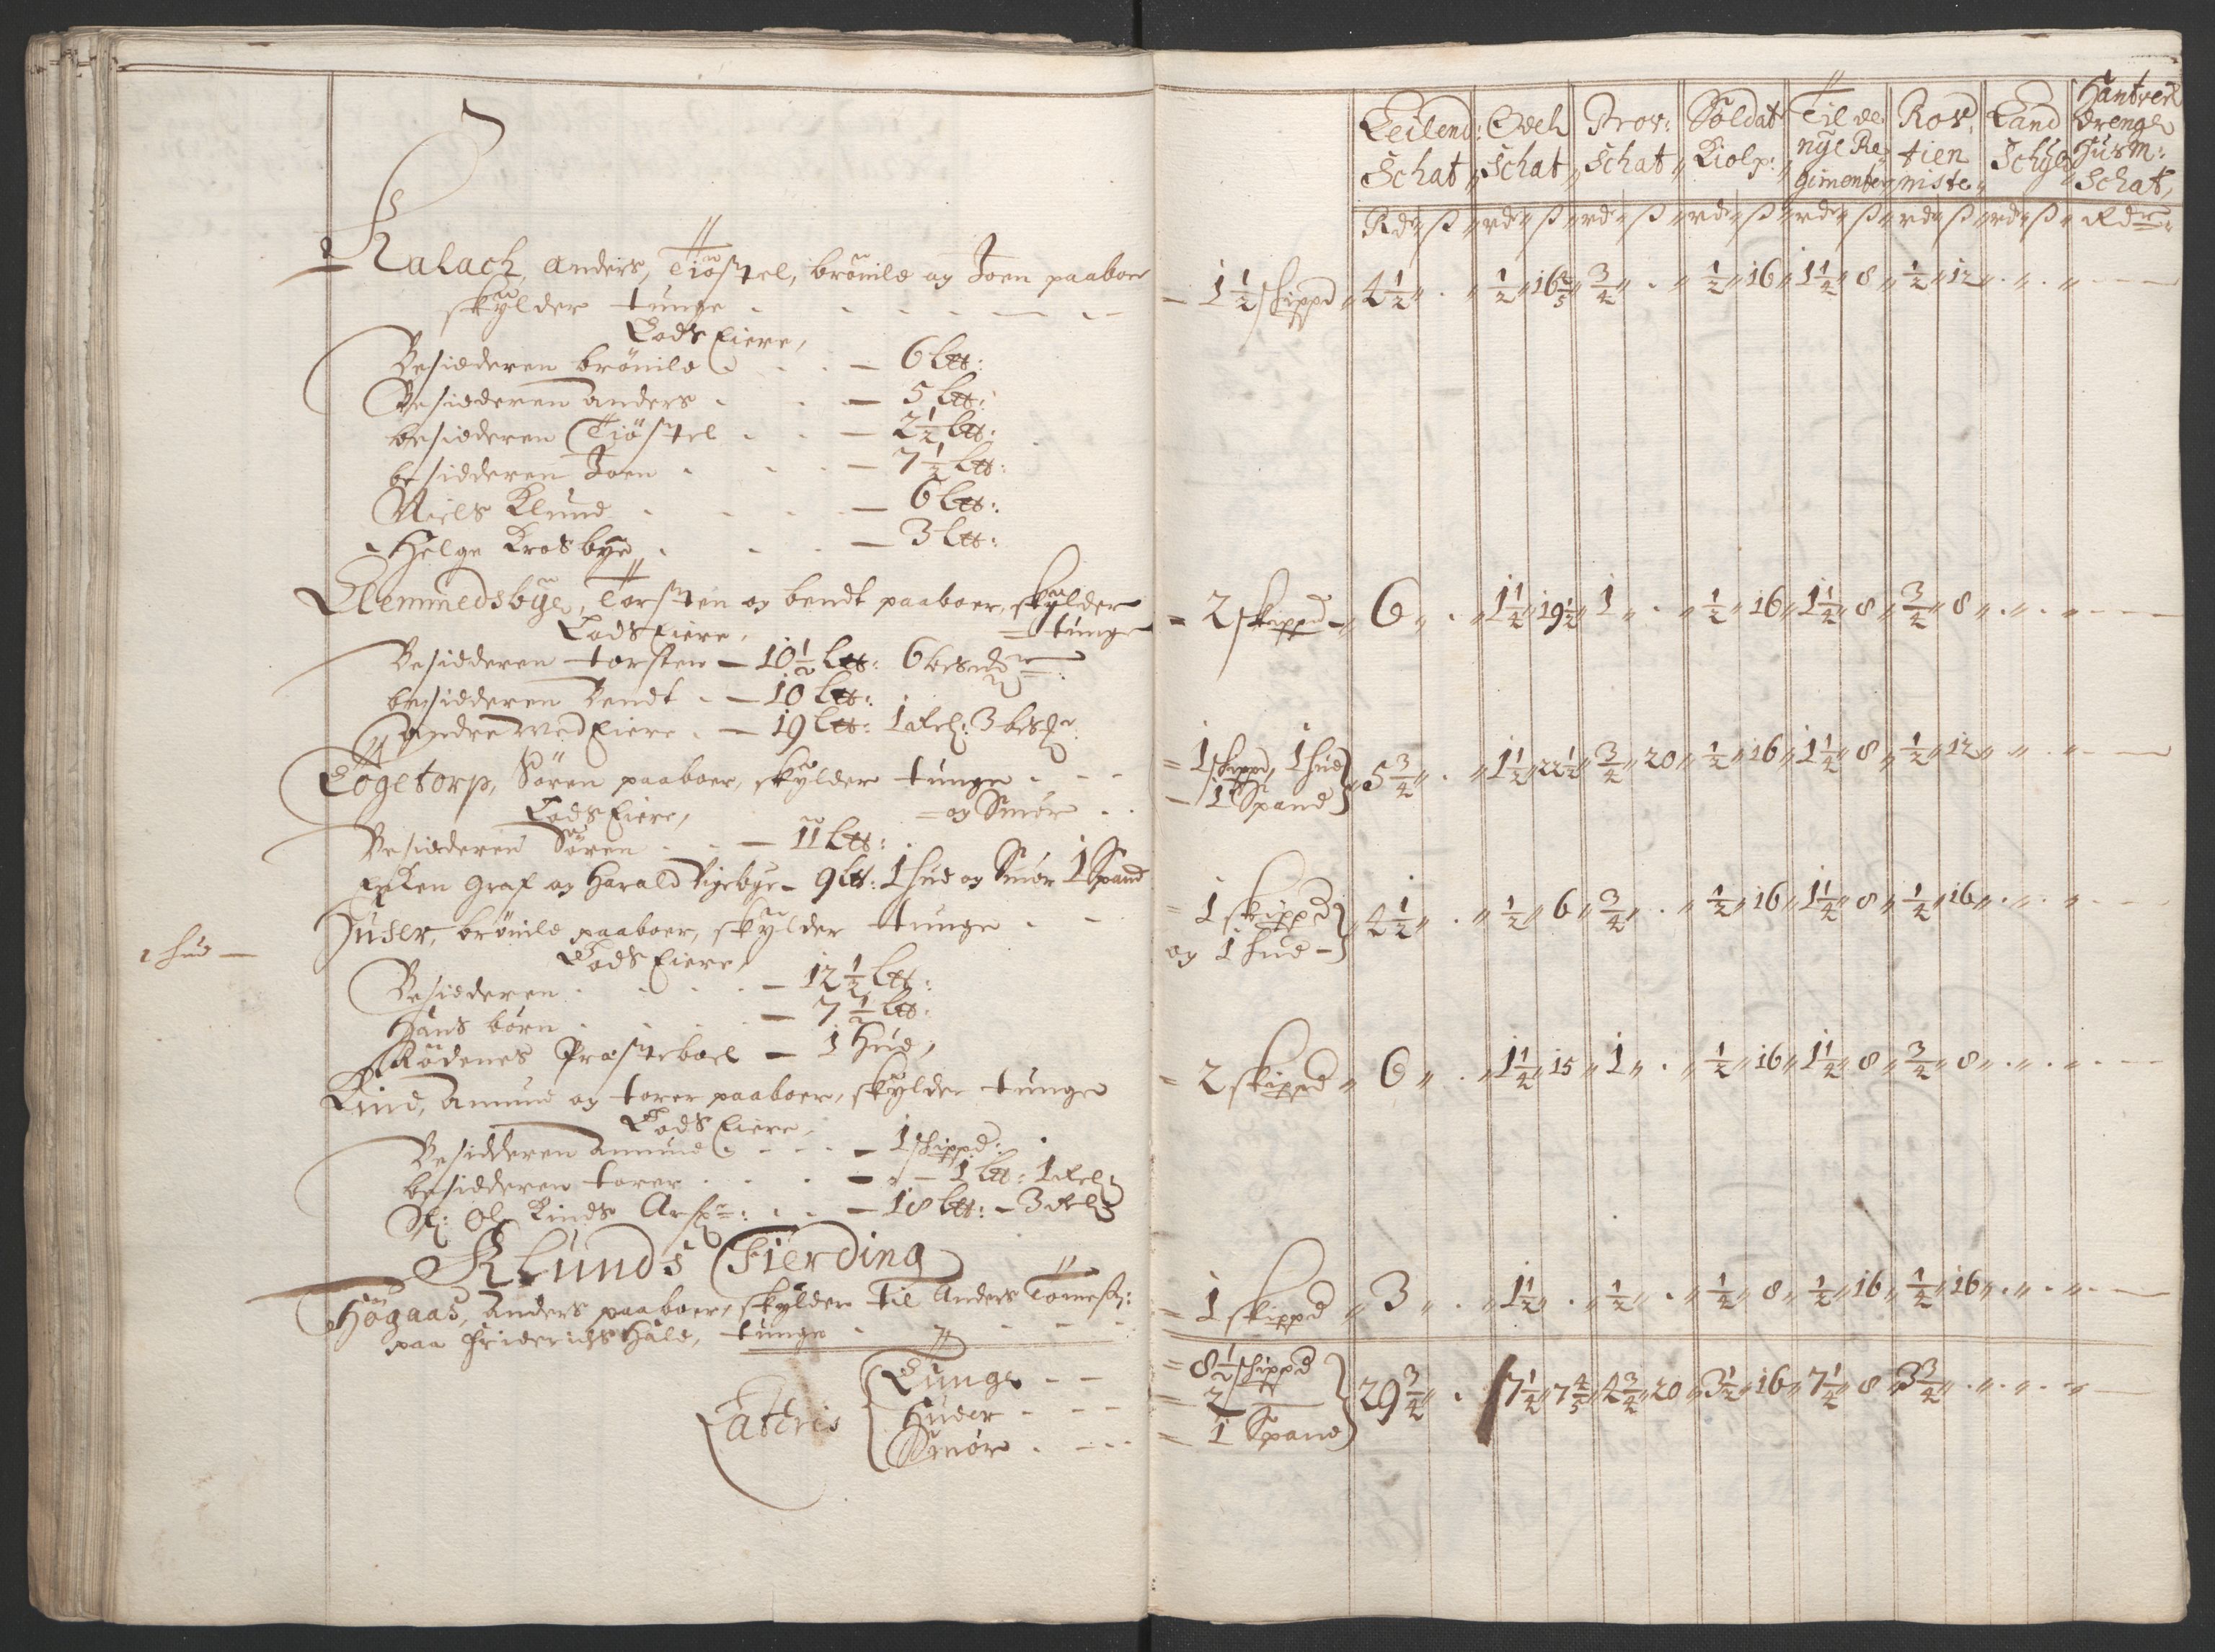 Kalach, Anders, Tiøstel, brønild og Joen paaboer
skylder tunge
Lods Eiere,
Besidderen brønild — 6 ltt:
Besidderen Anders — 5 ltt:
besidderen Tiøstel — 2½ ltt:
besidderen Joen — 7½ ltt:
Niels Klund — 6 ltt:
Helge Krosbye — 3 ltt:
Clemmedsbye, Torsten og bendt paaboer, skylder
Lods Eiere, = tunge
Besidderen torsten — 10½ ltt: 6
besidderen Bendt — 10 ltt:
Andre Med Eiere — 19 ltt: 1 3
Togetorp, Søren paaboer, skylder tunge
Lods Eiere, = og Smør
Besidderen Søren — 11 ltt:
Enken Graf og Harald Vigebye — 9 ltt: 1 hud og Smør 1 Spand
Huser, brønild paaboer, skylder tunge
1 hud — Lods Eiere,
Besidderen — 12½ ltt:
Hans børn — 7½ ltt:
Rødenes Præsteboel — 1 Hud,
Kind, Amund og torer paaboer, skylder tunge
Lods Eiere,
Besidderen Amund — 1 skippd:
besidderen torer — 1 ltt: 1
Sl: Ole Kinds — 18 ltt: — 3
Klunds Fierding
Høgaas, Anders paaboer, skylder til Anders
paa Friderichs Hald, tunge
Lateris { Tunge
Huder
Smør
Leilend: Schat Odels Schat Prov: Schat Soldat Kiolp: Til de nye Regimenter Rostienniste Land Schyld Hantverk Drenge Husm: Schat,
Rdr ß rdr ß rdr ß rdr ß rdr ß rdr ß rdr ß Rdr
— 1½ skippd 4½ . ½ 16⅘ ¾ . ½ 16 1¼ 8 ½ 12 . . —
= 2 skippd 6 . 1¼ 19½ 1 . ½ 16 1¼ 8 ¾ 8 . . —
= 1 skippd, 1 hud } 5¾ . 1½ 22½ ¾ 20 ½ 16 1¼ 8 ½ 12 . . —
— 1 Spand
= 1 skippd } 4½ . ½ 6 ¾ . ½ 16 1¼ 8 ¼ 16 . . —
og 1 hud —
= 2 skippd 6 . 1¼ 15 1 . ½ 16 1¼ 8 ¾ 8 . . —
= 1 skippd 3 . 1½ . ½ . ½ 8 ½ 16 ½ 16 . . —
= 8½ skippd
= 2 — } 29¾ . 7¼ 7⅘ 4¾ 20 3½ 16 7¼ 8 3¾ . . . —
= 1 Spand